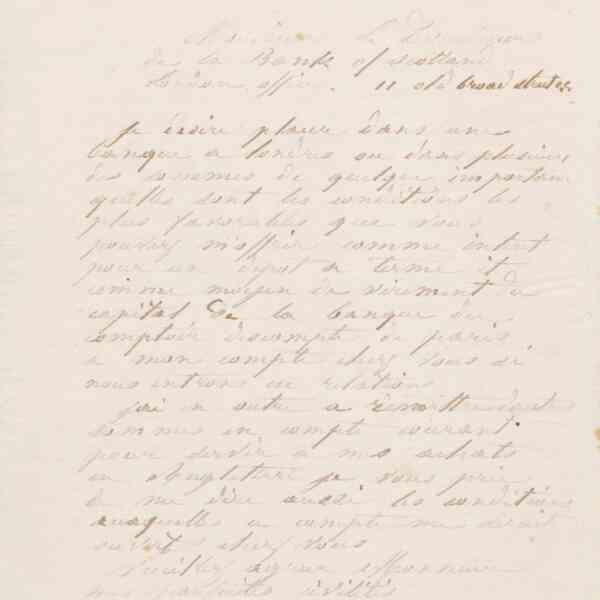 Monsieur le Directeur
de la Bank of Scotland
London office. 11 old broad street.
je désire placer dans une
banque a londres ou dans plusieurs
des sommes de quelque importance
quelles sont les conditions les
plus favorables que vous
pouvez m'offrir comme intérêt
pour un dépôt a terme et
comme moyen de virement du
capital de la banque du
comptoir descompte de paris
a mon compte chez vous si
nous entrons en relations
jai en outre a remettre
sommes en compte courant.
pour servir a mes achats
en angleterre je vous prie
de me dire aussi les conditions
auxquelles a compte me serait
ouvert chez vous
Veuillez agréer
mes parfaites civilités